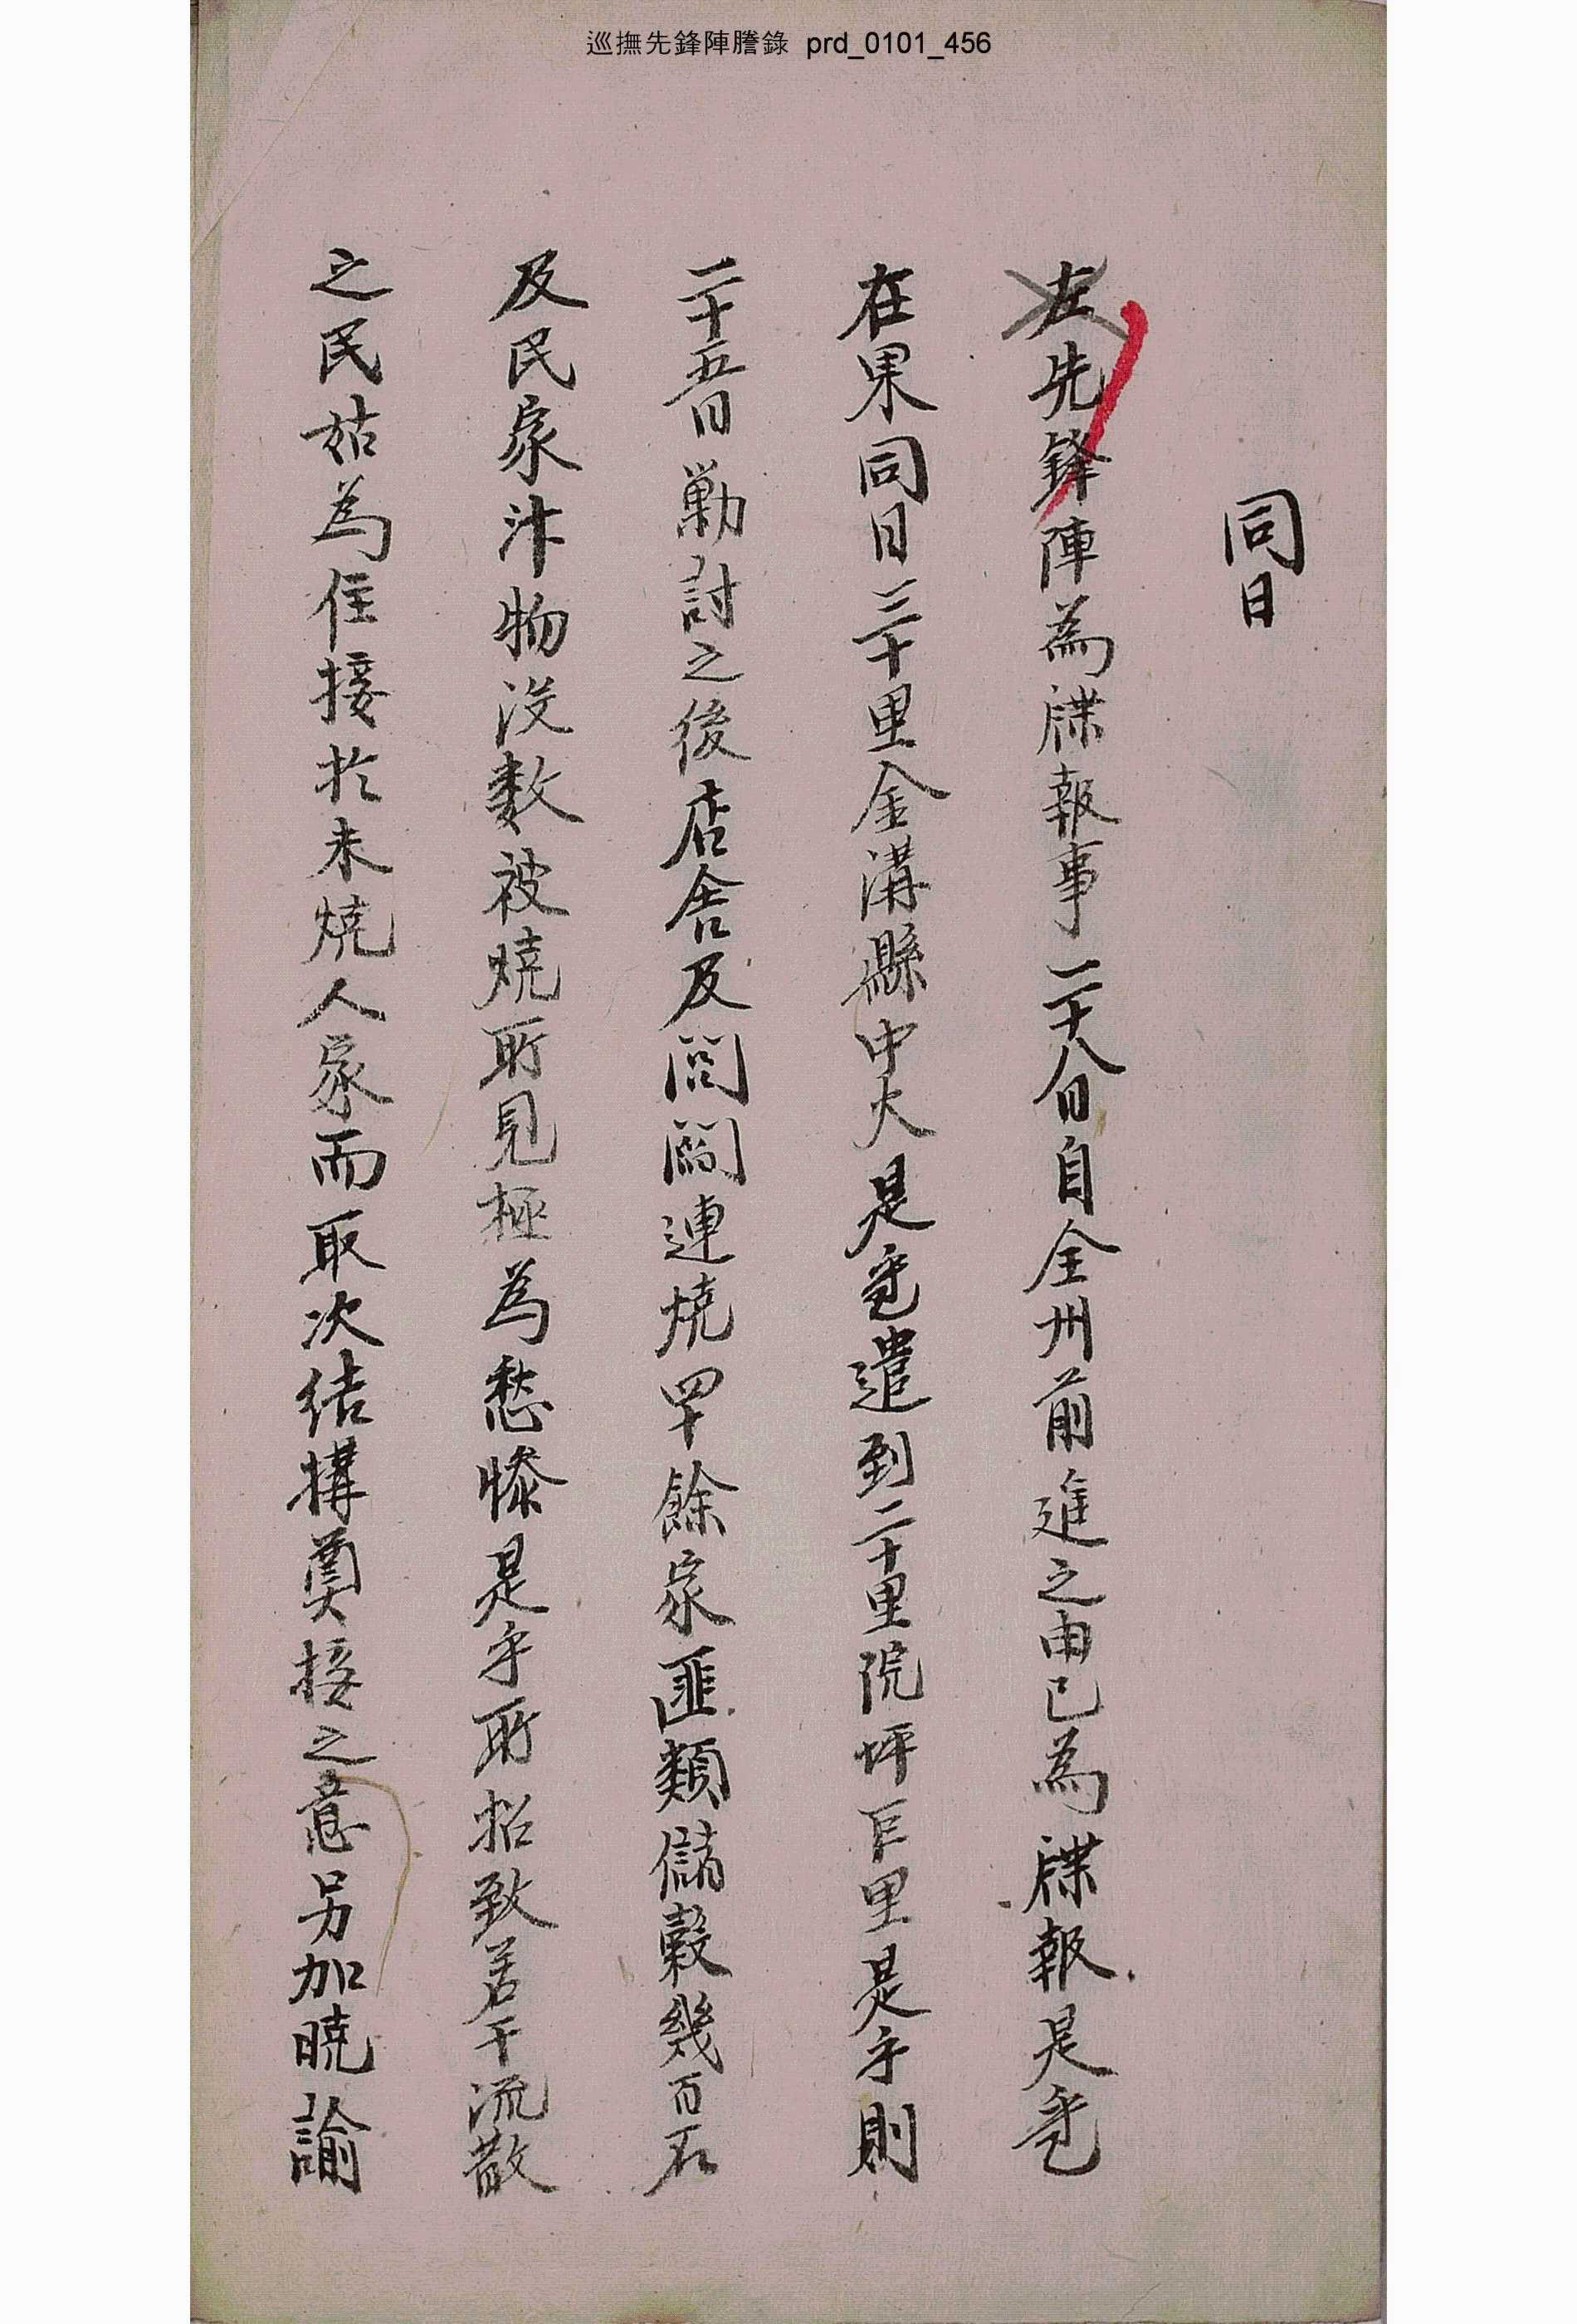 巡撫先鋒陣謄錄 prd_0101_456
同日
左先鋒陣爲牒報事二十八日自全州前進之由已爲牒報是乎
在果同日三十里金溝縣中火是乎遣到二十里院坪店里是乎則
二十五日勦討之後店舍及閭閻連燒四十餘家匪類儲穀幾百石
及民家汁物沒數被燒所見極爲愁慘是乎所招致若干流散
之民姑爲住接於未燒人家而取次結搆奠接之意另加曉諭